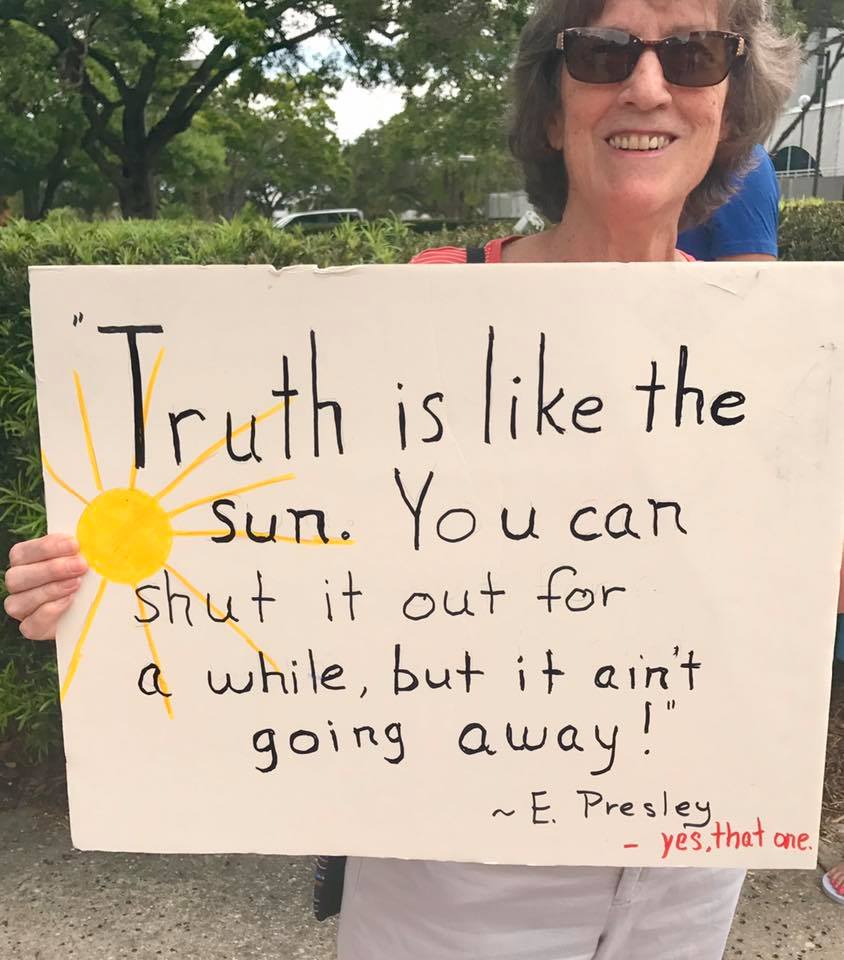 "Truth is like the
sun. You can
shut it out for
a while, but it ain't
going away!"
~ E. Presley
- yes, that one.